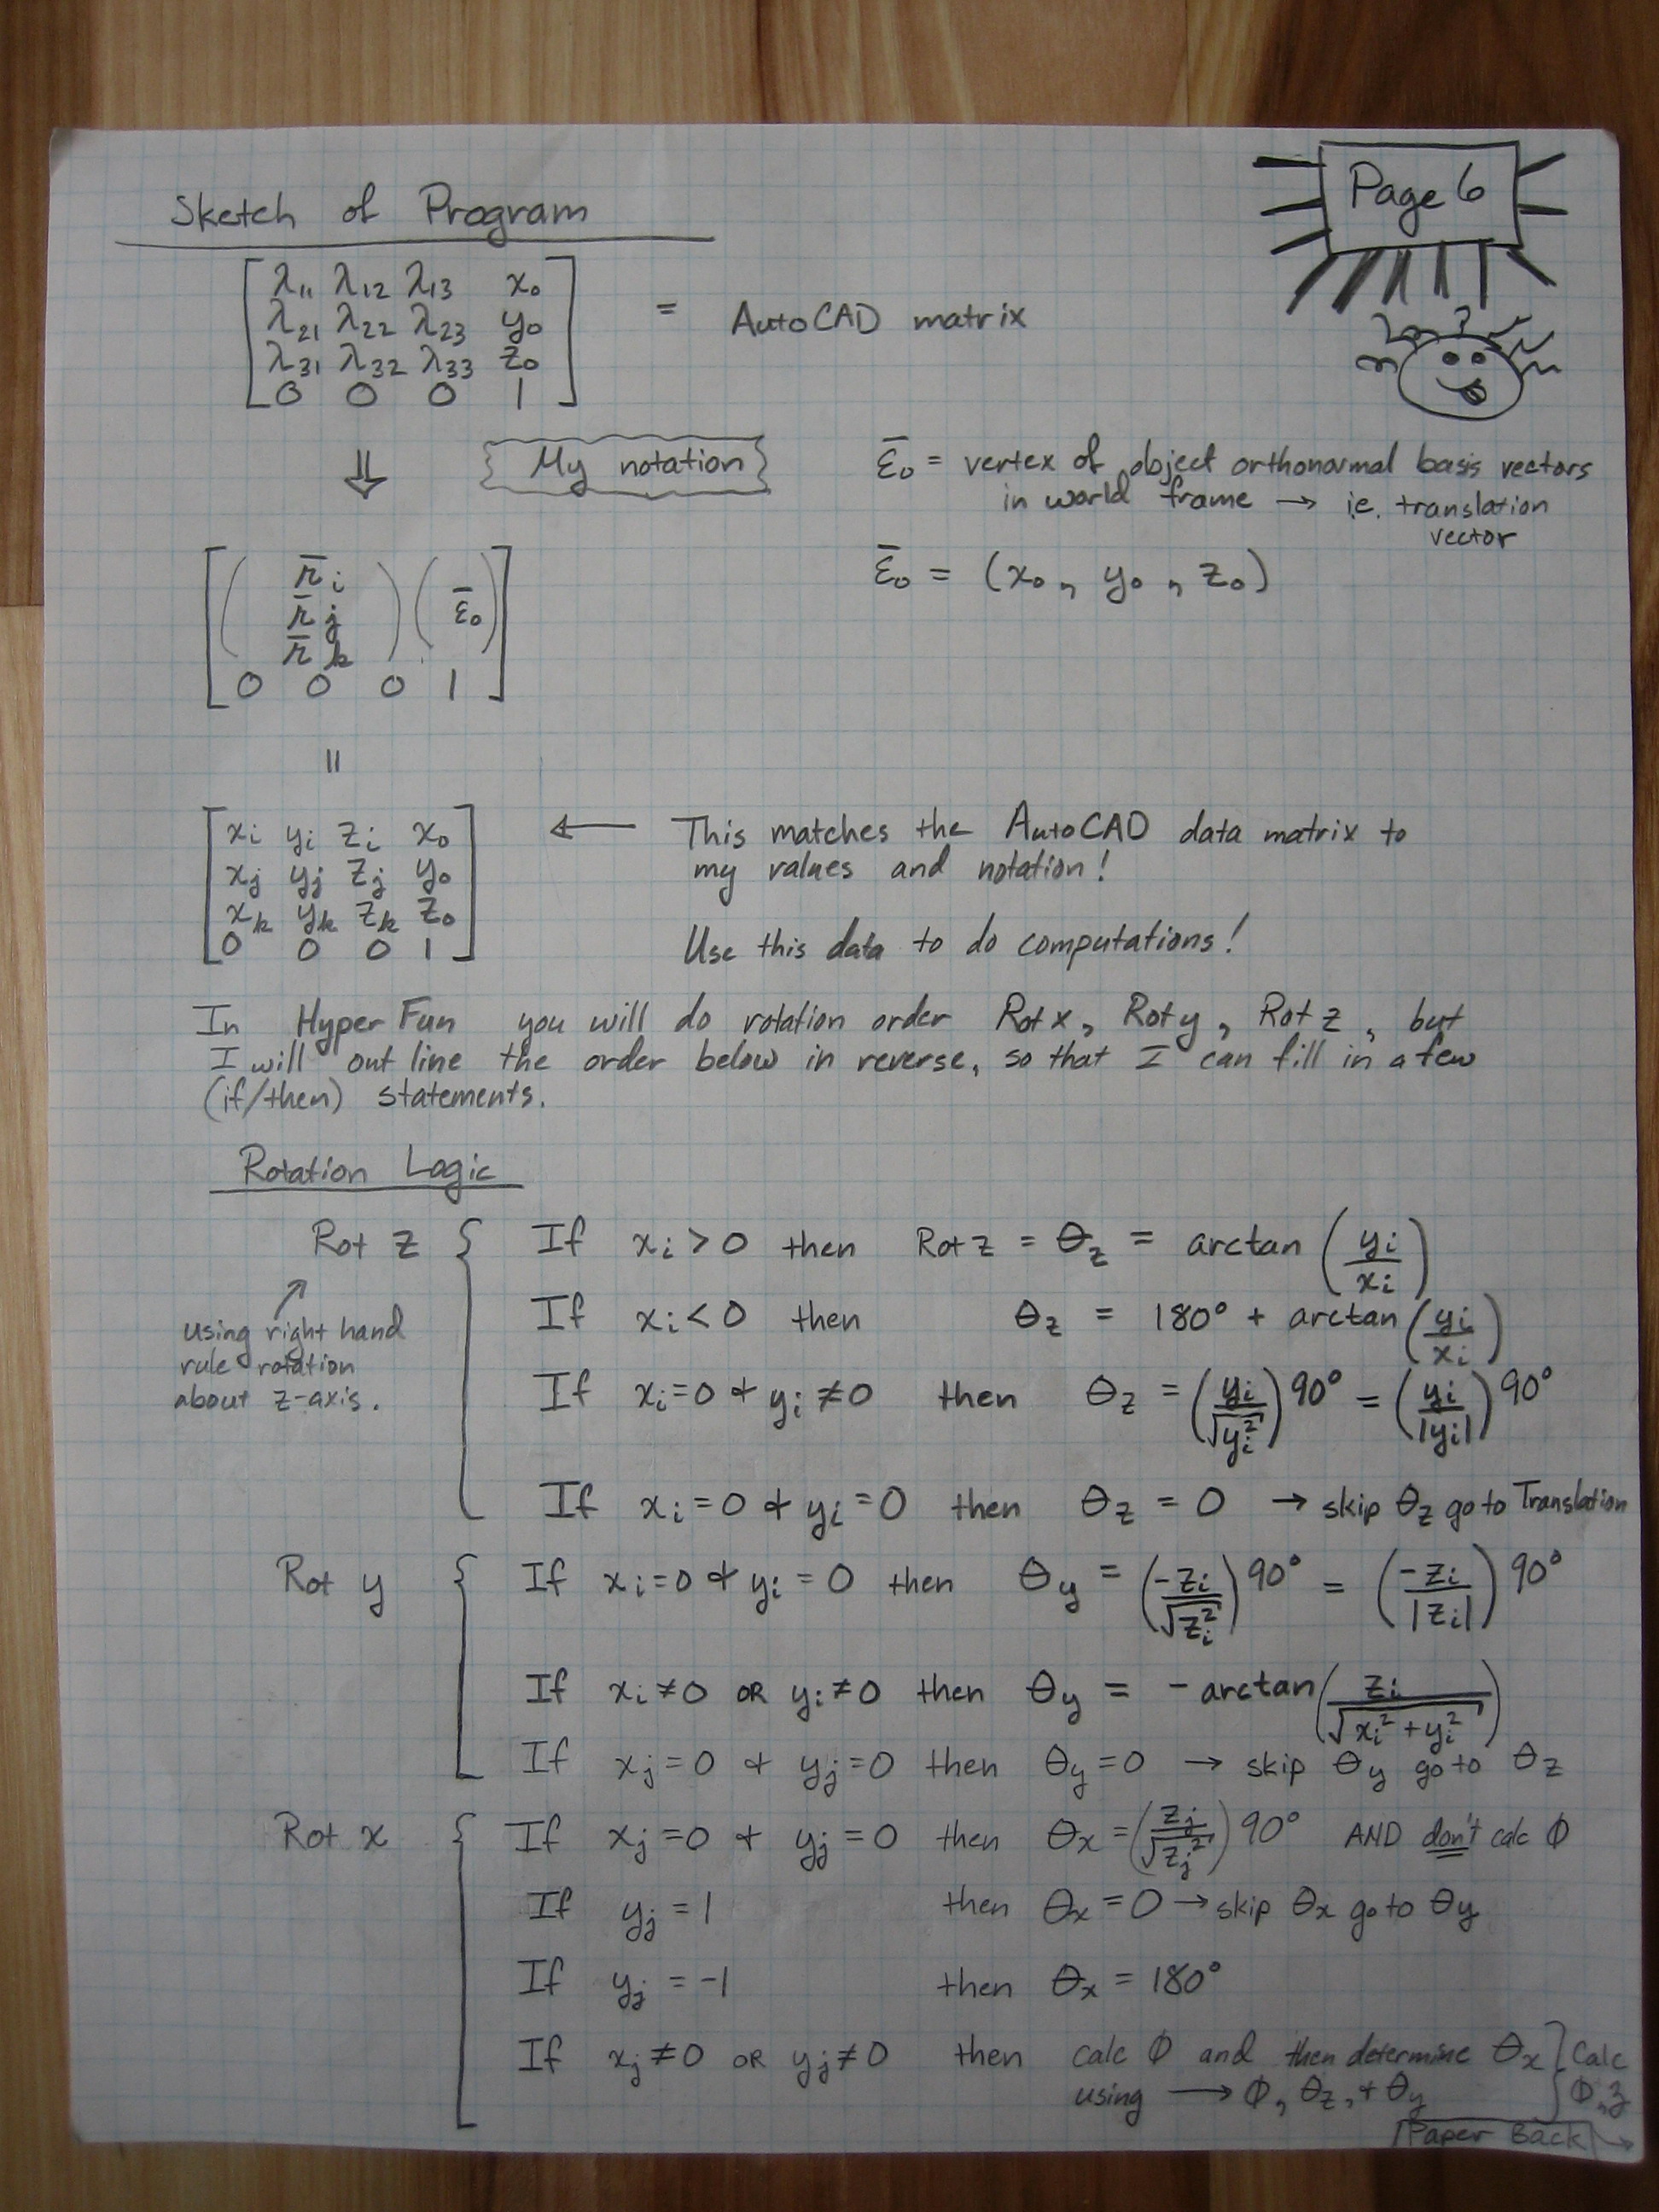 Page 6
Sketch of Program
[ λ11 λ12 λ13 x0
λ21 λ22 λ23 y0
λ31 λ32 λ33 z0
0 0 0 1 ]
= AutoCAD matrix
⇓ {My notation}
ε̄0 = vertex of object orthonormal basis vectors
in world frame → i.e. translation
vector
ε̄0 = (x0, y0, z0)
[ ( r̄i
r̄j
r̄k ) ( ε̄0 )
0 0 0 1 ]
=
[ xi yi zi x0
xj yj zj y0
xk yk zk z0
0 0 0 1 ]
← This matches the AutoCAD data matrix to
my values and notation!
Use this data to do computations!
In HyperFun you will do rotation order Rot x, Rot y, Rot z, but
I will out line the order below in reverse, so that I can fill in a few
(if/then) statements.
Rotation Logic
Rot z { If xi > 0 then Rot z = θz = arctan (yi/xi)
using right hand
rule rotation
about z-axis.
If xi < 0 then θz = 180° + arctan (yi/xi)
If xi = 0 + yi ≠ 0 then θz = (yi/√yi²) 90° = (yi/|yi|) 90°
If xi = 0 + yi = 0 then θz = 0 → skip θz go to Translation
Rot y { If xi = 0 + yi = 0 then θy = (-zi/√zi²) 90° = (-zi/|zi|) 90°
If xi ≠ 0 OR yi ≠ 0 then θy = - arctan (zi/√(xi² + yi²))
If xj = 0 + yj = 0 then θy = 0 → skip θy go to θz
Rot x { If xj = 0 + yj = 0 then θx = (zj/√zj²) 90° AND don't calc Φ
If yj = 1 then θx = 0 → skip θx go to θy
If yj = -1 then θx = 180°
If xj ≠ 0 OR yj ≠ 0 then calc Φ and then determine θx } Calc
using → Φ, θz, + θy
Paper Back →